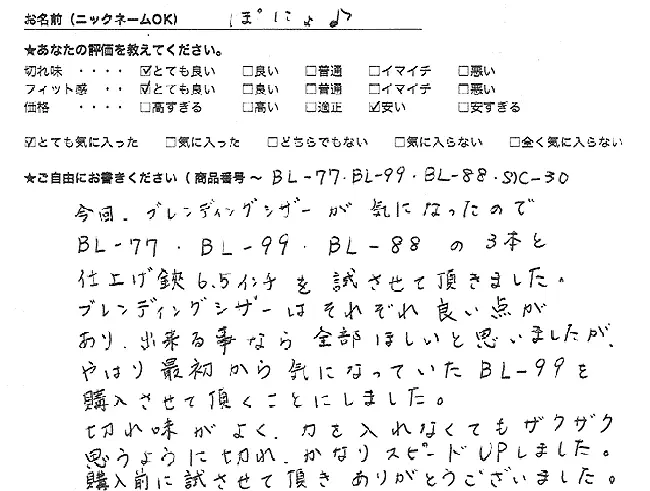 お名前（ニックネームOK） ぽにょ♪
★あなたの評価を教えてください。
切れ味 ・・・・ ☑とても良い □良い □普通 □イマイチ □悪い
フィット感 ・・・・ ☑とても良い □良い □普通 □イマイチ □悪い
価格 ・・・・ □高すぎる □高い □適正 ☑安い □安すぎる
☑とても気に入った □気に入った □どちらでもない □気に入らない □全く気に入らない
★ご自由にお書きください（商品番号～ BL-77・BL-99・BL-88・SDC-30
今回、ブレンディングシザーが気になったので
BL-77・BL-99・BL-88の3本と
仕上げ鋏6.5インチを試させて頂きました。
ブレンディングシザーはそれぞれ良い点が
あり、出来る事なら全部ほしいと思いましたが、
やはり最初から気になっていたBL-99を
購入させて頂くことにしました。
切れ味がよく、力を入れなくてもザクザク
思うように切れ、かなりスピードUPしました。
購入前に試させて頂きありがとうございました。